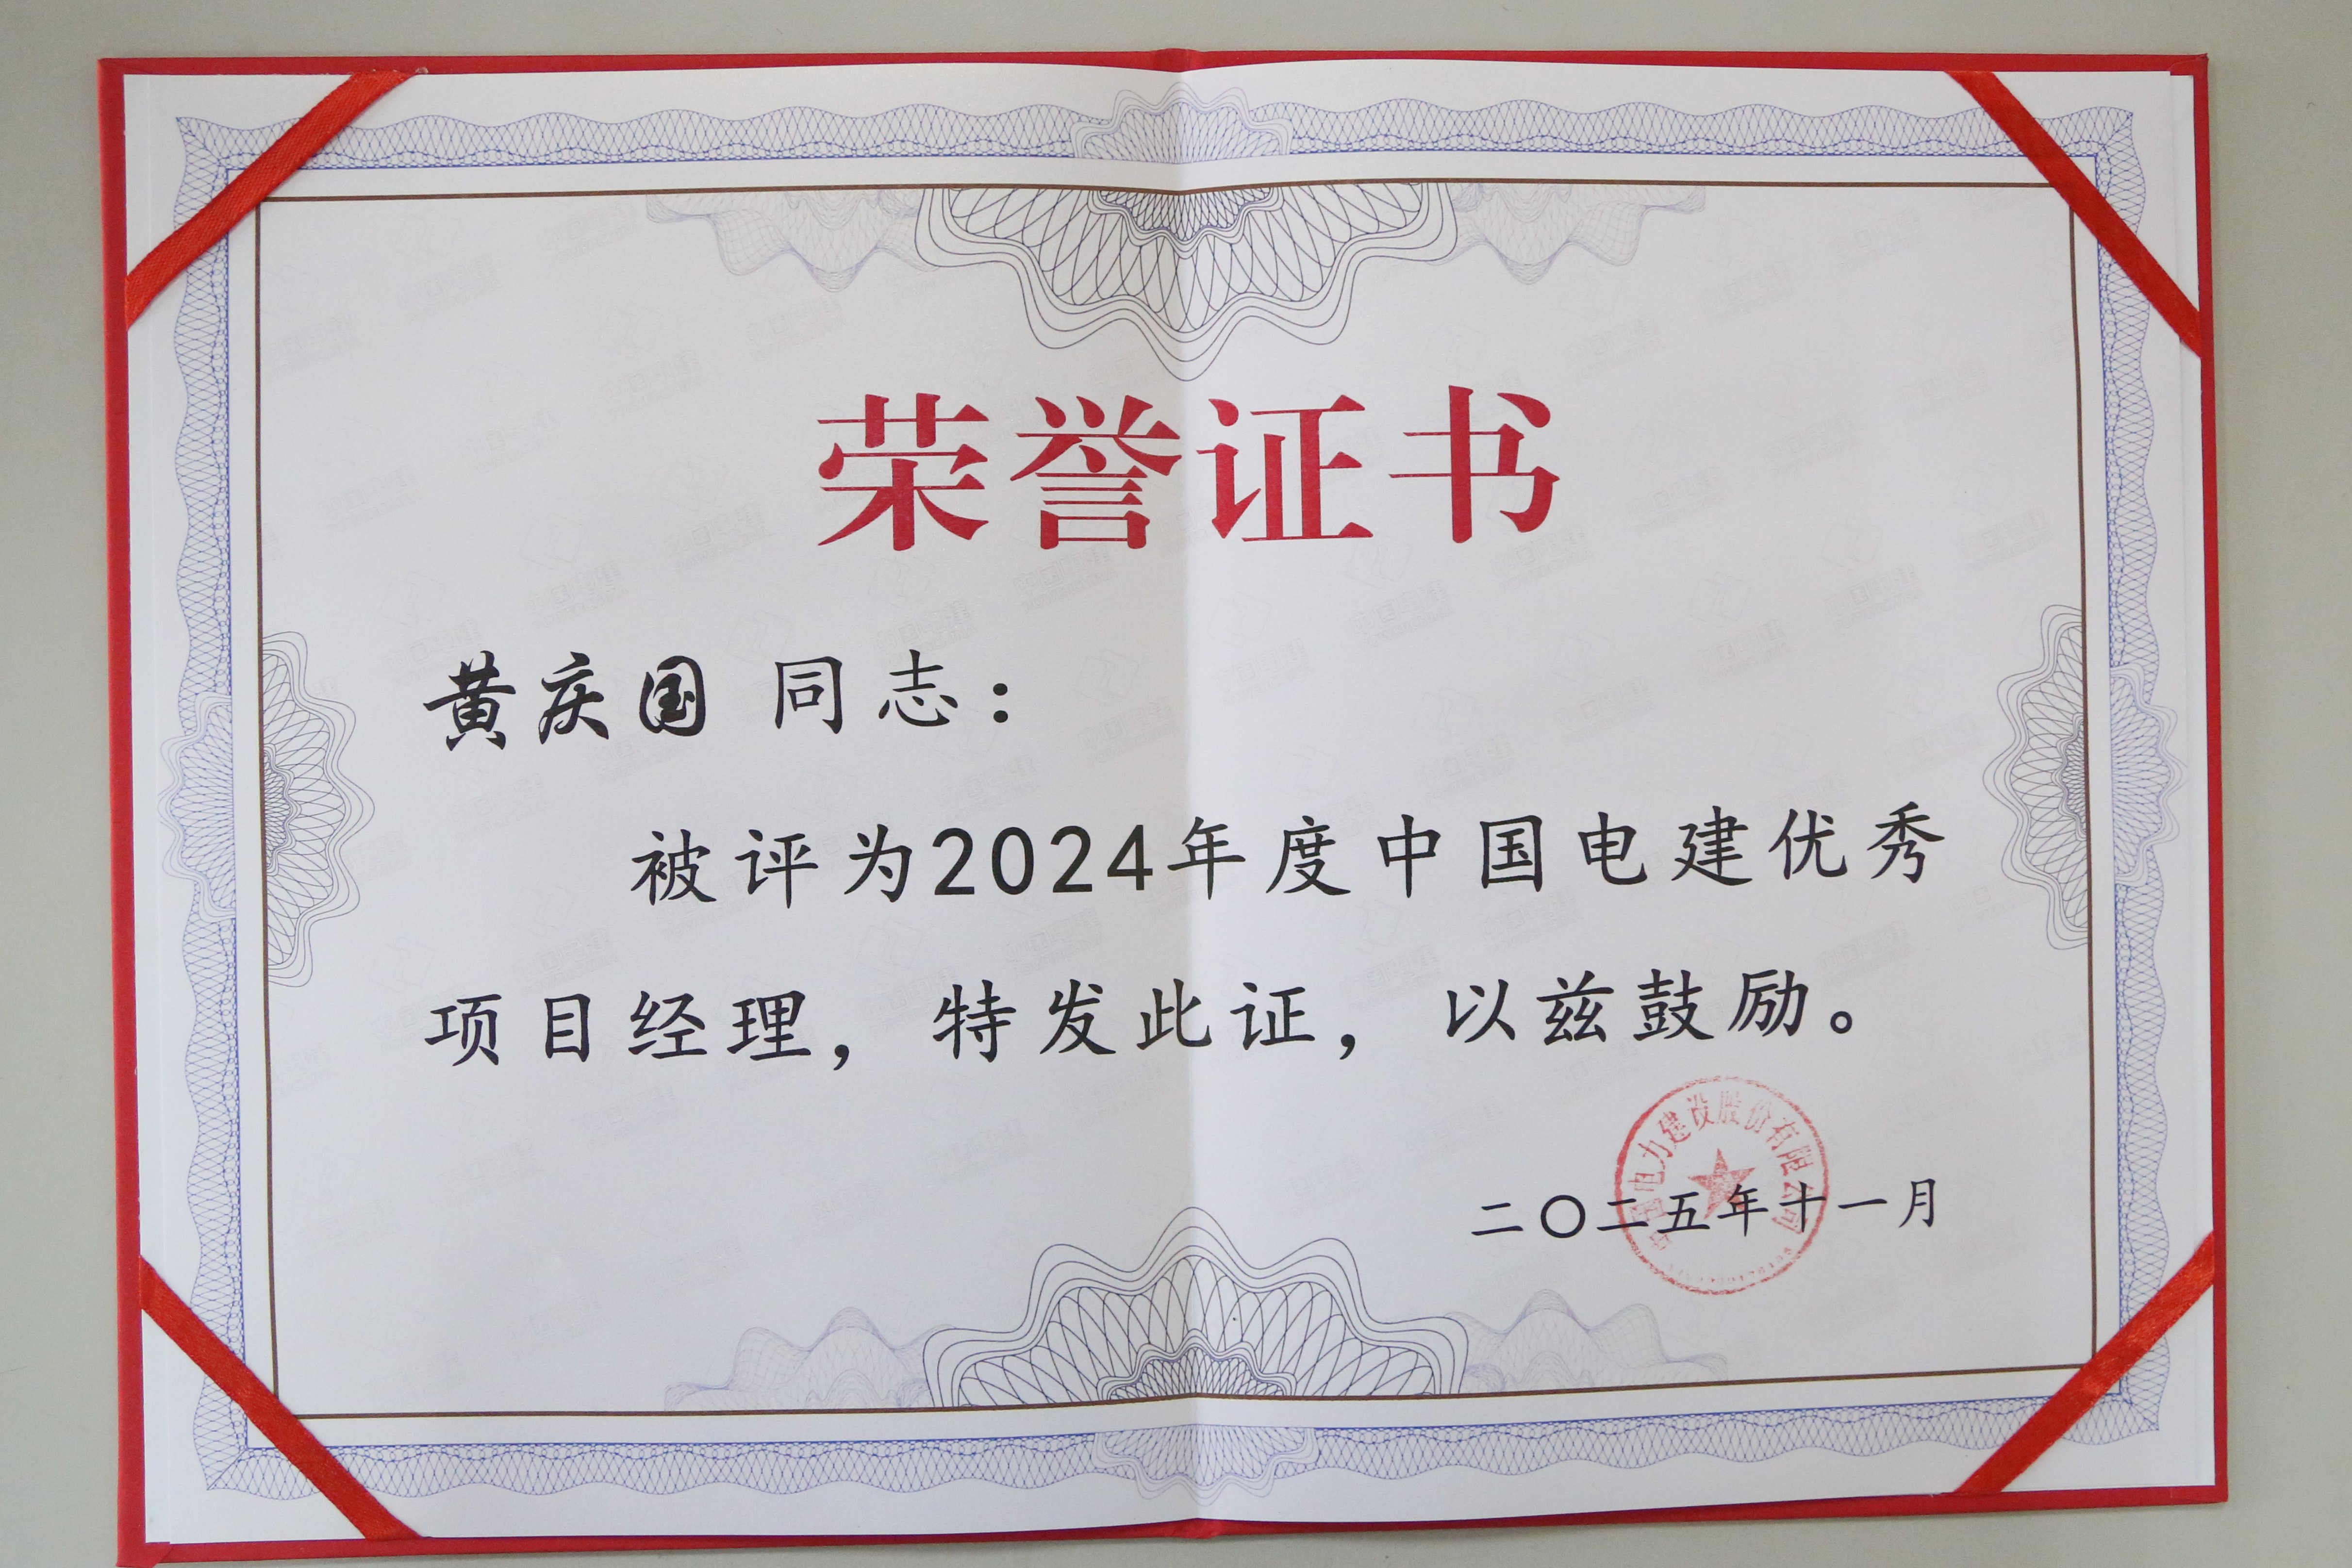 荣誉证书
黄庆国 同志：
被评为2024年度中国电建优秀
项目经理，特发此证，以兹鼓励。
中国电力建设股份有限公司
二〇二五年十一月